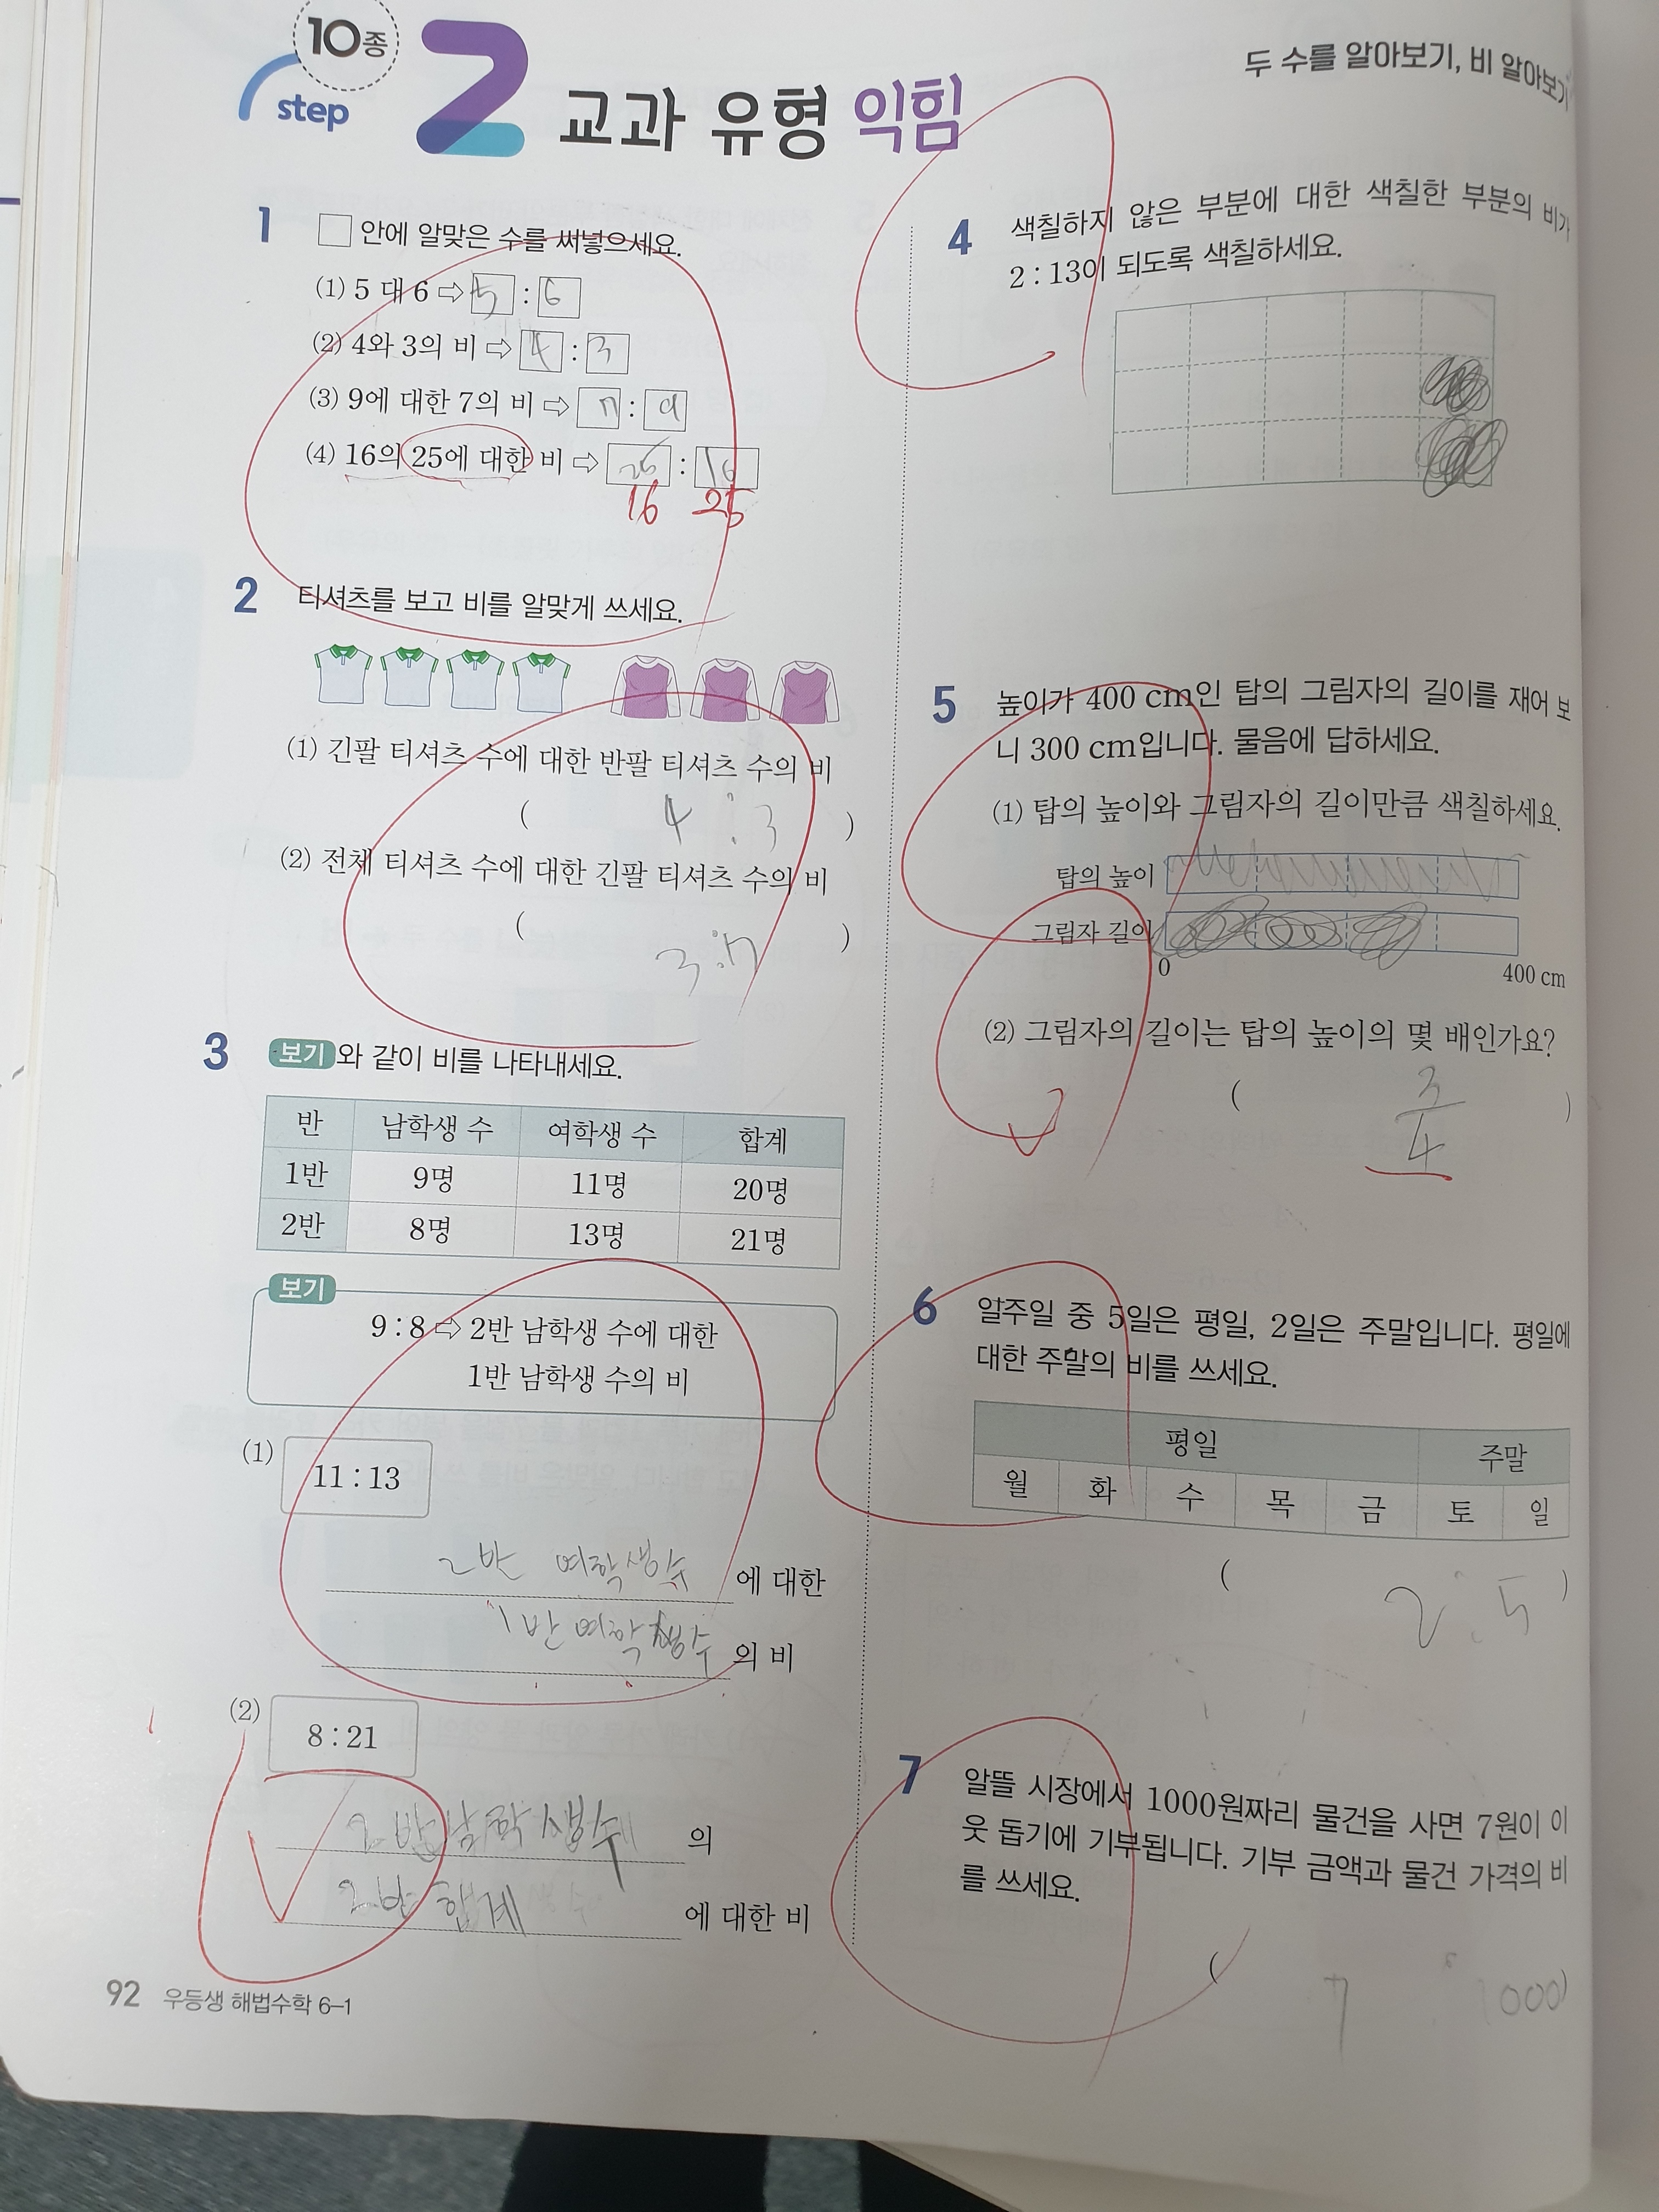 10종
step 2 교과 유형 익힘
두 수를 알아보기, 비 알아보기
1 □ 안에 알맞은 수를 써넣으세요.
(1) 5 대 6 ⇨ 5 : 6
(2) 4와 3의 비 ⇨ 4 : 3
(3) 9에 대한 7의 비 ⇨ 7 : 9
(4) 16의 25에 대한 비 ⇨ 25 : 16
16 25
2 티셔츠를 보고 비를 알맞게 쓰세요.
(1) 긴팔 티셔츠 수에 대한 반팔 티셔츠 수의 비
( 4 : 3 )
(2) 전체 티셔츠 수에 대한 긴팔 티셔츠 수의 비
( 3 : 7 )
3 보기 와 같이 비를 나타내세요.
반 남학생 수 여학생 수 합계
1반 9명 11명 20명
2반 8명 13명 21명
보기
9 : 8 ⇨ 2반 남학생 수에 대한
1반 남학생 수의 비
(1) 11 : 13
2반 여학생수 에 대한
1반 여학생수 의 비
(2) 8 : 21
2반 남학생수 의
2반 합계 에 대한 비
92 우등생 해법수학 6-1
4 색칠하지 않은 부분에 대한 색칠한 부분의 비가
2 : 13이 되도록 색칠하세요.
5 높이가 400 cm인 탑의 그림자의 길이를 재어 보
니 300 cm입니다. 물음에 답하세요.
(1) 탑의 높이와 그림자의 길이만큼 색칠하세요.
탑의 높이
그림자 길이
0 400 cm
(2) 그림자의 길이는 탑의 높이의 몇 배인가요?
( 3/4 )
6 일주일 중 5일은 평일, 2일은 주말입니다. 평일에
대한 주말의 비를 쓰세요.
평일 주말
월 화 수 목 금 토 일
( 2 : 5 )
7 알뜰 시장에서 1000원짜리 물건을 사면 7원이 이
웃 돕기에 기부됩니다. 기부 금액과 물건 가격의 비
를 쓰세요.
( 7 : 1000 )